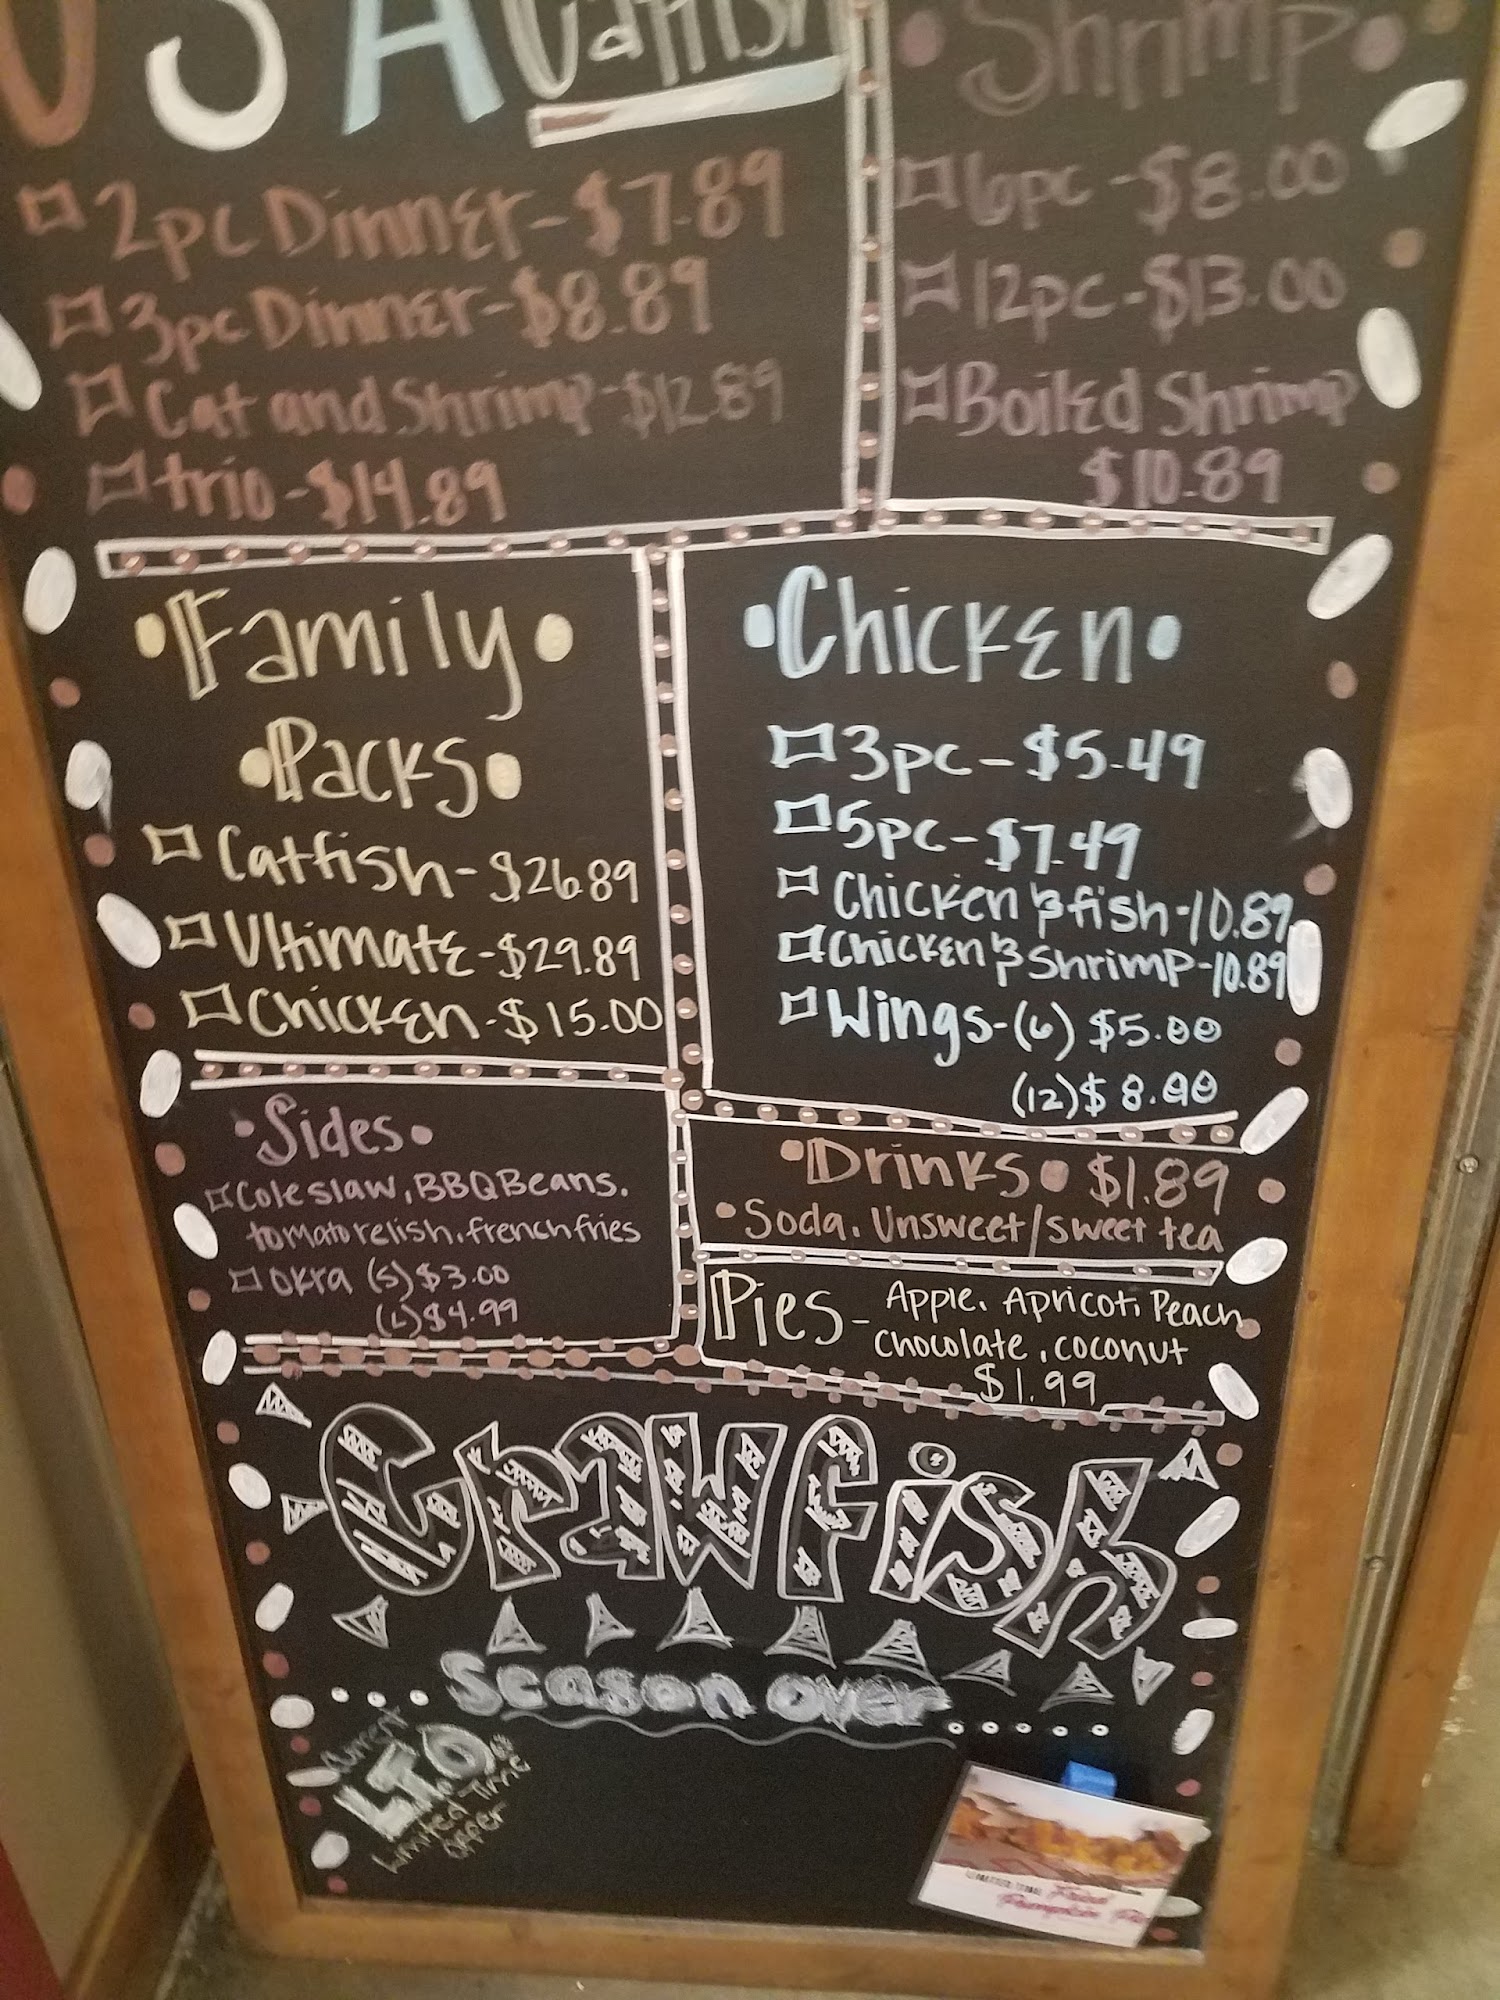 USA Catfish
2pc Dinner - $7.89
3pc Dinner - $8.89
Cat and Shrimp - $12.89
trio - $14.89
• Shrimp •
6pc - $8.00
12pc - $13.00
Boiled Shrimp
$10.89
• Family •
• Packs •
Catfish - $26.89
Ultimate - $29.89
Chicken - $15.00
• Chicken •
3pc - $5.49
5pc - $7.49
Chicken & fish - 10.89
Chicken & Shrimp - 10.89
Wings - (6) $5.00
(12) $8.00
• Sides •
Coleslaw, BBQ Beans,
tomato relish, french fries
Okra (S) $3.00
(L) $4.99
• Drinks • $1.89
• Soda, Unsweet/sweet tea
Pies - Apple, Apricot, Peach,
Chocolate, coconut
$1.99
Crawfish
Season over
Current
LTO
Limited Time
Offer
LIMITED TIME Fried
Pumpkin Pie